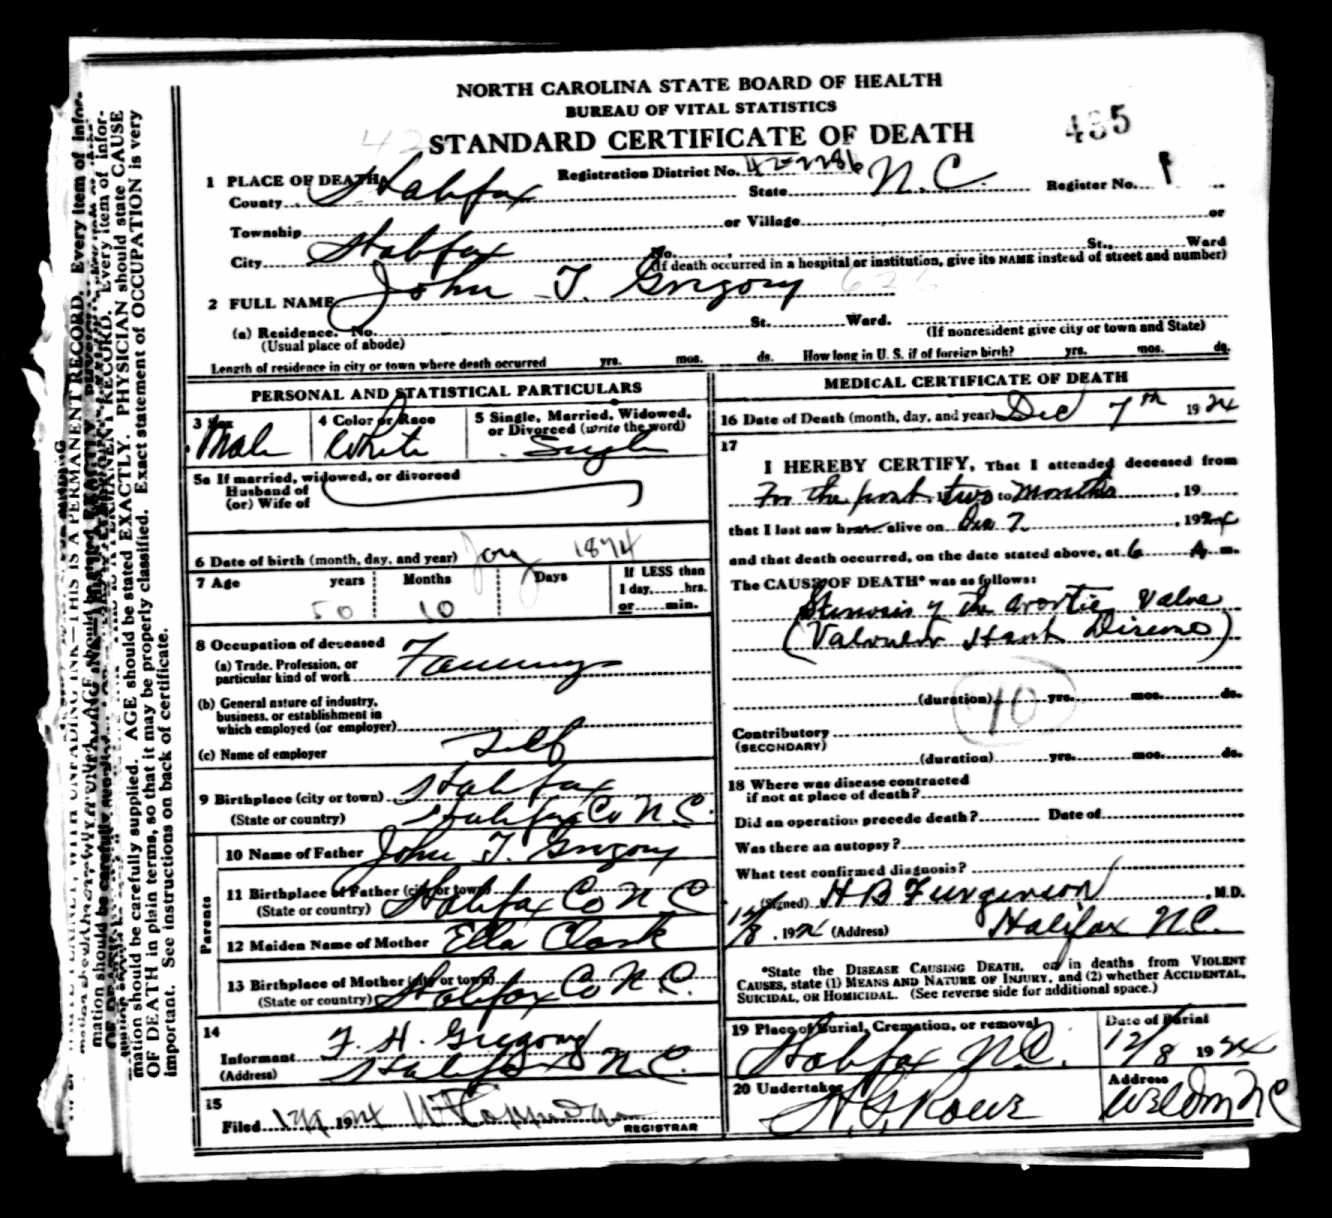 NORTH CAROLINA STATE BOARD OF HEALTH
BUREAU OF VITAL STATISTICS
STANDARD CERTIFICATE OF DEATH
485
1 PLACE OF DEATH
Registration District No. 42-2286
Register No. 1
County Halifax State N.C.
Township or Village or
City Halifax No. St., Ward
(If death occurred in a hospital or institution, give its NAME instead of street and number)
2 FULL NAME John T. Gregory
(a) Residence. No. St. Ward.
(Usual place of abode) (If nonresident give city or town and State)
Length of residence in city or town where death occurred yrs. mos. ds. How long in U. S. if of foreign birth? yrs. mos. ds.
PERSONAL AND STATISTICAL PARTICULARS
3 Sex Male
4 Color or Race White
5 Single, Married, Widowed, or Divorced (write the word) Single
5a If married, widowed, or divorced
Husband of
(or) Wife of
6 Date of birth (month, day, and year) Jany 1874
7 Age years Months Days If LESS than
1 day, hrs.
or min.
50 10
8 Occupation of deceased
(a) Trade, Profession, or
particular kind of work Farming
(b) General nature of industry,
business, or establishment in
which employed (or employer)
(c) Name of employer Self
9 Birthplace (city or town) Halifax
(State or country) Halifax Co N.C.
Parents
10 Name of Father John T. Gregory
11 Birthplace of Father (city or town)
(State or country) Halifax Co N C
12 Maiden Name of Mother Ella Clark
13 Birthplace of Mother (city or town)
(State or country) Halifax Co N.C.
14
Informant F. H. Gregory
(Address) Halifax N.C.
15
Filed 1924
REGISTRAR
MEDICAL CERTIFICATE OF DEATH
16 Date of Death (month, day, and year) Dec 7th 1924
17
I HEREBY CERTIFY, That I attended deceased from
For the past two to Months, 19
that I last saw h alive on Dec 7, 1924
and that death occurred, on the date stated above, at 6 A m.
The CAUSE OF DEATH* was as follows:
Stenosis of the Aortic Valve
(Valvular Heart Disease)
(duration) 10 yrs. mos. ds.
Contributory
(SECONDARY)
(duration) yrs. mos. ds.
18 Where was disease contracted
if not at place of death?
Did an operation precede death? Date of
Was there an autopsy?
What test confirmed diagnosis?
(Signed) H B Furgerson, M.D.
12/8, 1924 (Address) Halifax N.C.
*State the DISEASE CAUSING DEATH, or in deaths from VIOLENT
CAUSES, state (1) MEANS AND NATURE OF INJURY, and (2) whether ACCIDENTAL,
SUICIDAL, OR HOMICIDAL. (See reverse side for additional space.)
19 Place of Burial, Cremation, or removal Halifax N.C.
Date of Burial 12/8 1924
20 Undertaker H.G. Rowe
Address Weldon NC
mation should be carefully supplied. AGE should be stated EXACTLY. PHYSICIAN should state CAUSE
OF DEATH in plain terms, so that it may be properly classified. Exact statement of OCCUPATION is very
important. See instructions on back of certificate.